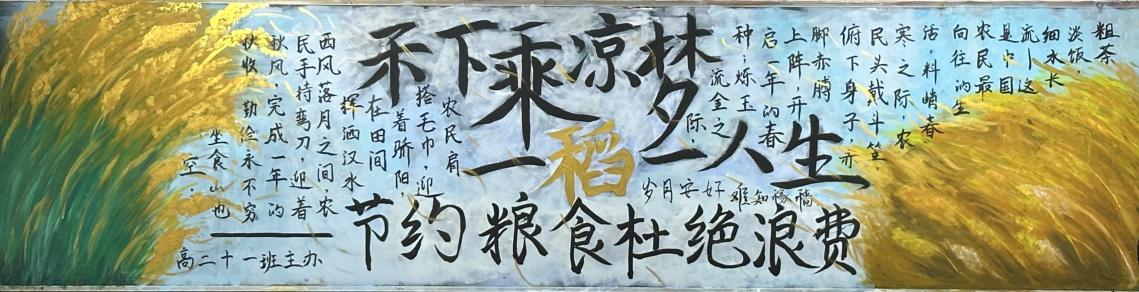 禾下乘凉梦
一稻一人生
岁月安好 难知祸福
节约粮食杜绝浪费
粗茶
淡饭，
细水长
流——这
是中国
农民最
向往的生
活，料峭春
寒之际，农
民头戴斗笠，
俯下身子，赤
脚赤膊
上阵，开
启一年的春
种；烁玉
流金之
际，
农民肩
搭毛巾，迎
着骄阳，
在田间
挥洒汉水
西风落月之间，农
民手持弯刀，迎着
秋风，完成一年的
秋收。勤俭永不穷
坐食山也
空，
高二十一班主办